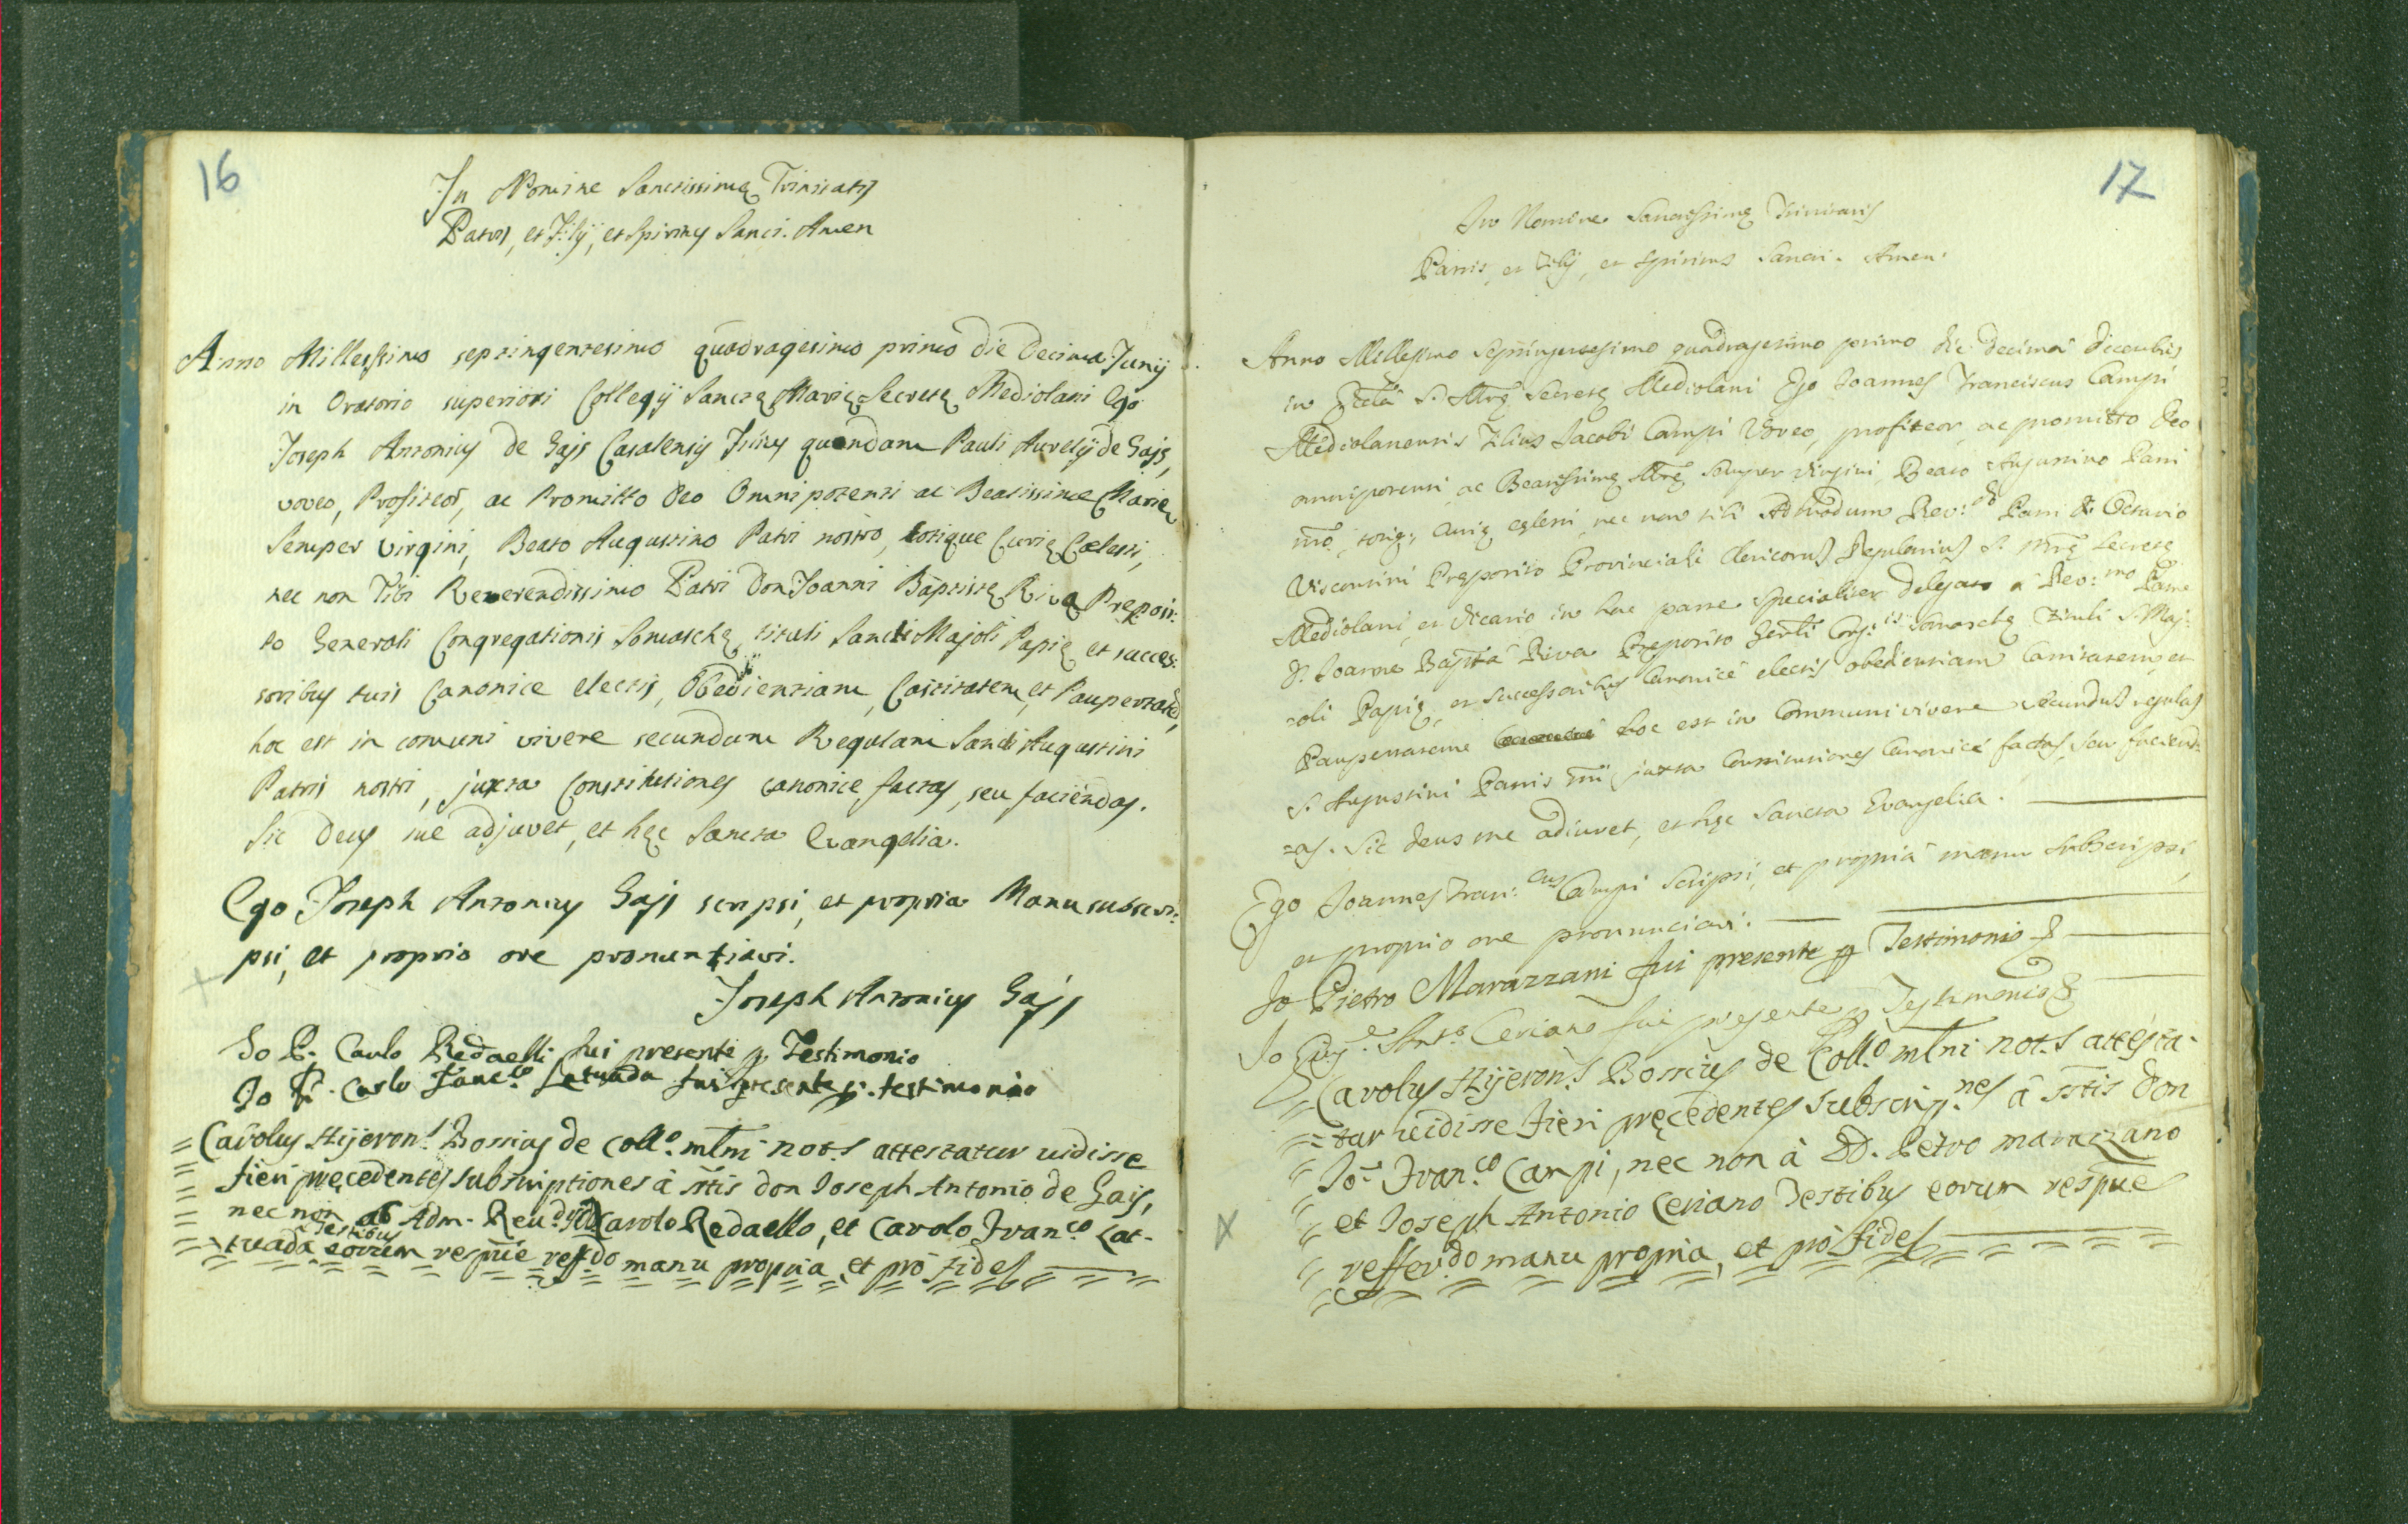 16
In Nomine Sanctissimę Trinitatis
Patris, et Filij, et Spiritus Sancti. Amen
Anno Millessimo septingentesimo quadragesimo primo die Decima Junij
in Oratorio superiori Collegij Sanctę Marię Secretę Mediolani Ego
Joseph Antonius de Gajs Casalensis Filius quondam Pauli Aurelij de Gajs,
voveo, Profiteor, ac Promitto Deo Omnipotenti ac Beatissimę Marię
Semper Virgini, Beato Augustino Patri nostro, totique Curię Cœlesti,
nec non Tibi Reverendissimo Patri Don Joanni Baptistę Riva Preposi:
to Generali Congregationis Somaschę, tituli Sancti Majoli Papię et succes:
soribus tuis Canonice electis, Obedientiam, Castitatem, et Paupertatē,
hoc est in comuni vivere secundum Regulam Sancti Augustini
Patris nostri, juxta Constitutiones canonice factas, seu faciendas.
Sic Deus me adjuvet, et hęc Sancta Evangelia.
Ego Joseph Antonius Gajs scripsi, et propria Manu subscri:
psi, et proprio ore pronuntiavi.
Joseph Antonius Gajs
Io P. Carlo Redaelli fui presente p. Testimonio
Io P. Carlo Franc.co Latuada fui presente p. testimonio
= Carolus Hijeron.s Bossius de Coll.o mlni not.s attestatur uidisse
= fieri pręcedentes subscriptiones à sstis don Joseph Antonio de Gais,
= nec non ab Adm. Reu.dis Carolo Redaello, et Carolo Fran.co Lat-
= tuada testibus eorum respūe reff.do manu propria, et prò fide
17
In Nomine Sanctissimę Trinitatis
Patris, et Filij, et Spiritus Sancti. Amen.
Anno Millesimo Septingentesimo quadragesimo primo die decima decembris
in Eccłā S. Mrę Secretę Mediolani Ego Joannes Franciscus Campi
Mediolanensis Filius Jacobi Campi Voveo, profiteor, ac promitto Deo
omnipotenti, ac Beatissimę Mrę semper Virgini, Beato Augustino Patri
nr̄o, totiq; Curię cęlesti, nec non tibi Admodum Rev:do Patri D. Octavio
Vicecomini Pręposito Provinciali Clericorum Regularium S. Mrę Secretę
Mediolani, et Vicario in hac parte specialiter delegato a Rev:mo Patre
D. Joanne Bapt̄a Riva Pręposito Gen̄li Cong:is Somaschę Tituli S. Maj:
:oli Papię, et successoribus Canonicè electis obedientiam Castitatem, et
Paupertatem hoc est in Communi vivere secundum regulas
S. Augustini Patris n̄ri juxta Constitutiones Canonicè factas, seu faciend=
=as. Sic Deus me adiuvet, et hęc Sancta Evangelia.
Ego Joannes Fran:cus Campi scripsi, et propria manu subscripsi,
et proprio ore pronunciavi.
Io Pietro Marazzani fui presente p Testimonio
Io Giu.e Ant.o Ceriano fui presente p Testimonio
= Carolus Hijeron.s Bossius de Coll.o mlni not.s attesta-
= tur uidisse fieri pręcedentes subscrip.nes à sstis don
= Jo: Fran.co Campi, nec non à DD. Petro marazzano
= et Joseph Antonio Ceriano Testibus eorum respūe
= reffer.do manu propria, et prò fide